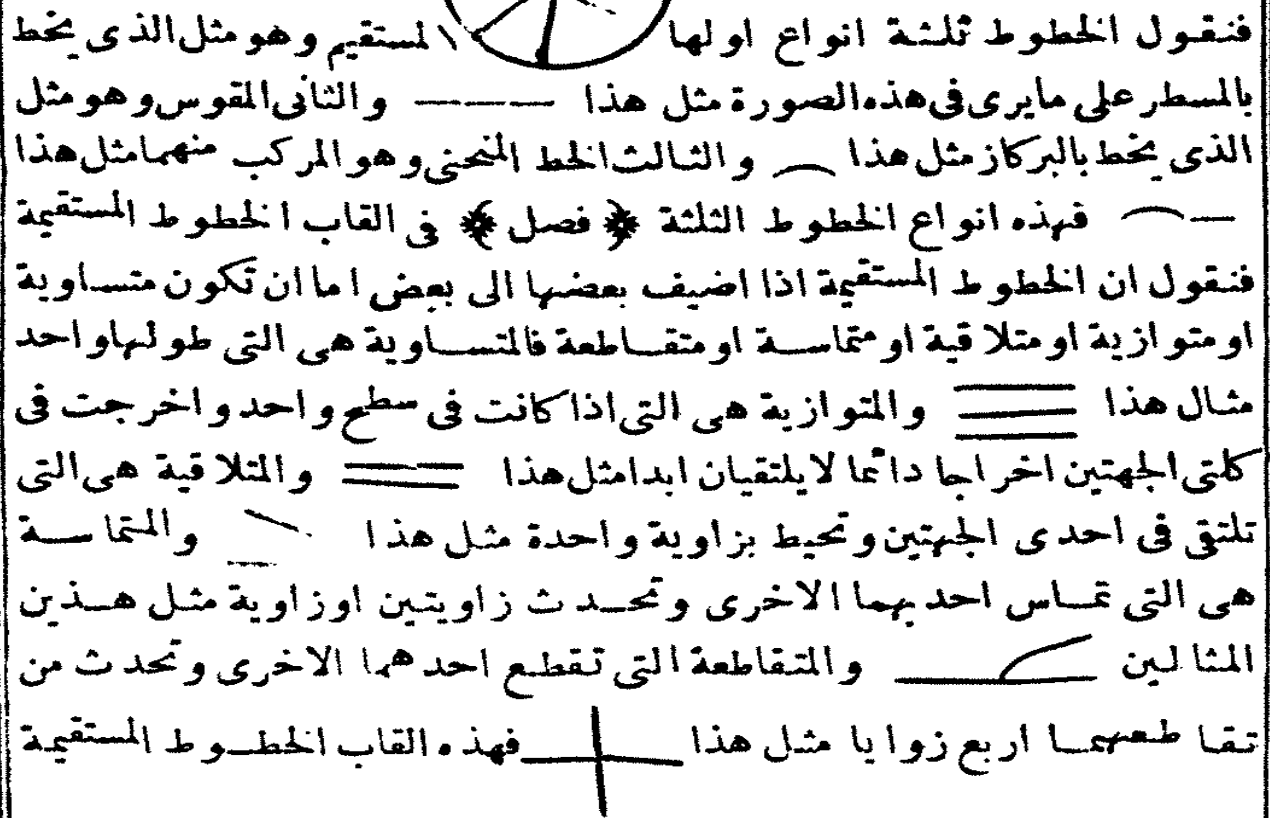 فنقول الخطوط ثلثة انواع اولها المستقيم وهو مثل الذى يخط
بالمسطر على مايرى فى هذه الصورة مثل هذا والثانى المقوس وهو مثل
الذى يخط بالبركاز مثل هذا والثالث الخط المنحنى وهو المركب منهما مثل هذا
فهذه انواع الخطوط الثلثة ﴿ فصل ﴾ فى القاب الخطوط المستقيمة
فنقول ان الخطوط المستقيمة اذا اضيف بعضها الى بعض اما ان تكون متساوية
او متوازية او متلاقية او متماسة او متقاطعة فالمتساوية هى التى طولها واحد
مثال هذا والمتوازية هى التى اذا كانت فى سطح واحد واخرجت فى
كلتى الجهتين اخراجا دائما لا يلتقيان ابدا مثل هذا والمتلاقية هى التى
تلتقى فى احدى الجهتين وتحيط بزاوية واحدة مثل هذا والمتماسة
هى التى تماس احديهما الاخرى وتحدث زاويتين او زاوية مثل هذين
المثالين والمتقاطعة التى تقطع احدهما الاخرى وتحدث من
تقاطعهما اربع زوايا مثل هذا فهذه القاب الخطوط المستقيمة